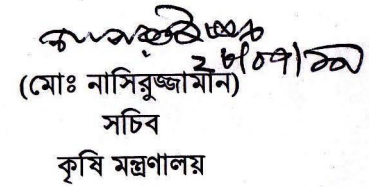 ২৮/০৭/১৯
(মোঃ নাসিরুজ্জামান)
সচিব
কৃষি মন্ত্রণালয়